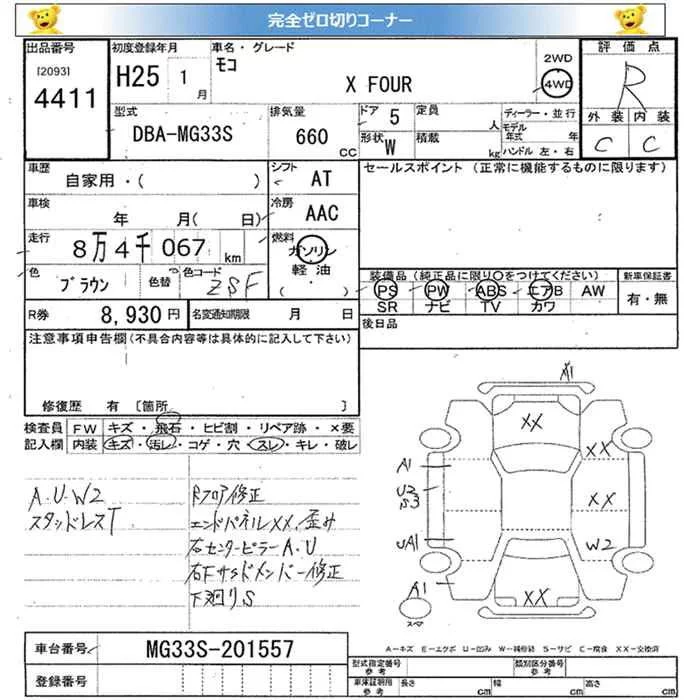 完全ゼロ切りコーナー
出品番号
[2093]
4411
初度登録年月
H25 1 月
車名・グレード
モコ
X FOUR
2WD
4WD
評価点
R
外装 内装
C C
型式
DBA-MG33S
排気量
660 CC
ドア 5
定員 人
形状 W
積載 kg
ディーラー・並行
モデル年式 年
ハンドル 左・右
車歴
自家用・( )
シフト
AT
セールスポイント (正常に機能するものに限ります)
車検
年 月( 日)
冷房
AAC
走行
8万4千067 km
燃料
ガソリン
軽油
( )
色
ブラウン
色替
色コード
ZSF
装備品 (純正品に限り○をつけてください)
PS PW ABS エアB AW
SR ナビ TV カワ
新車保証書
有・無
R券 8,930 円
名変通知期限 月 日
後日品
注意事項申告欄(不具合内容等は具体的に記入して下さい)
修復歴 有 [箇所 ]
検査員
記入欄
FW キズ・飛石・ヒビ割・リペア跡・×要
内装 キズ・汚レ・コゲ・穴・スレ・キレ・破レ
A.U.W2
スタッドレスT
Rフロア修正
エンドパネルXX.歪み
右センターピラーA.U
右Fサイドメンバー修正
下廻りS
A1
XX
XX
A1
U2
S3
XX
UA1
W2
A1
XX
スペア
A-キズ E-エクボ U-凹み W-補修跡 S-サビ C-腐食 XX-交換済
車台番号 MG33S-201557
登録番号
型式指定番号
参考
類別区分番号
参考
車庫証明用
参考
長さ cm 幅 cm 高さ cm